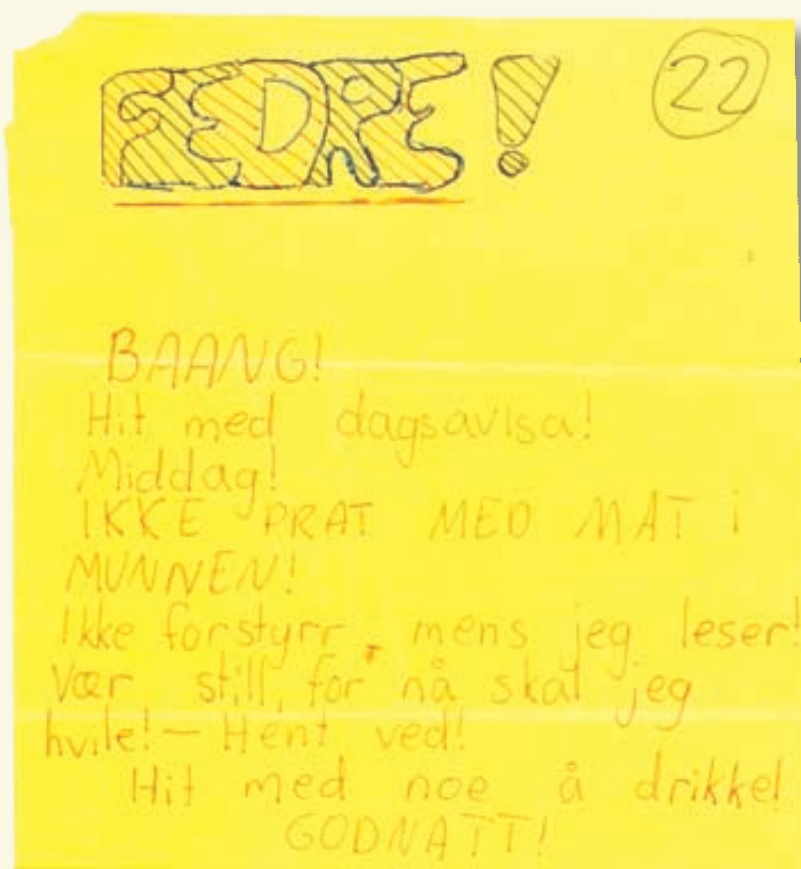 FEDRE!
22
BAANG!
Hit med dagsavisa!
Middag!
IKKE PRAT MED MAT i
MUNNEN!
Ikke forstyrr, mens jeg leser!
Vær still, for nå skal jeg
hvile! - Hent ved!
Hit med noe å drikke!
GODNATT!